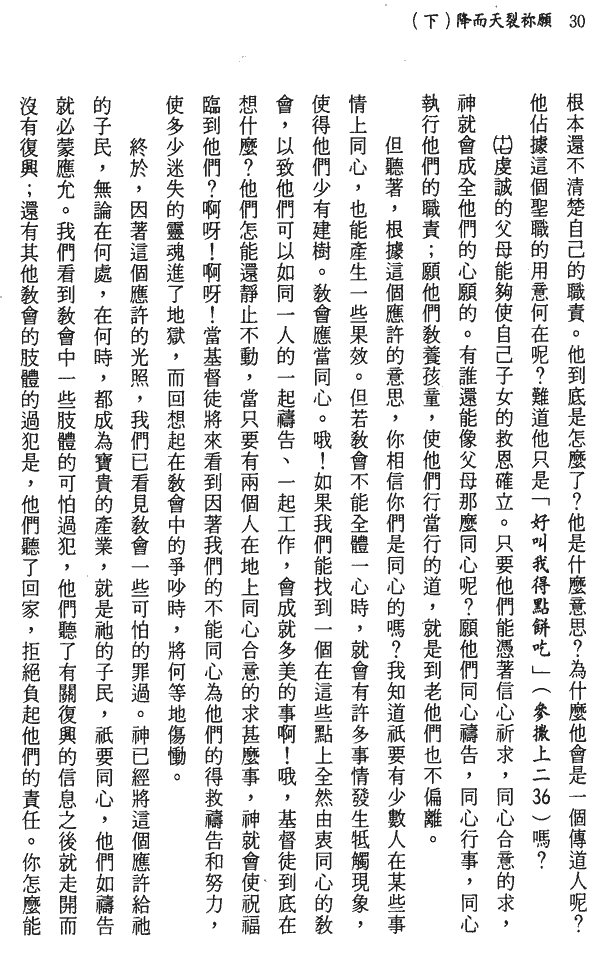 30 願祢裂天而降（下）
根本還不清楚自己的職責。他到底是怎麼了？他是什麼意思？為什麼他會是一個傳道人呢？
他佔據這個聖職的用意何在呢？難道他只是「好叫我得點餅吃」（參撒上二36）嗎？
(十七)虔誠的父母能夠使自己子女的救恩確立。只要他們能憑著信心祈求，同心合意的求，
神就會成全他們的心願的。有誰還能像父母那麼同心呢？願他們同心禱告，同心行事，同心
執行他們的職責；願他們教養孩童，使他們行當行的道，就是到老他們也不偏離。
但聽著，根據這個應許的意思，你相信你們是同心的嗎？我知道祇要有少數人在某些事
情上同心，也能產生一些果效。但若教會不能全體一心時，就會有許多事情發生牴觸現象，
使得他們少有建樹。教會應當同心。哦！如果我們能找到一個在這些點上全然由衷同心的教
會，以致他們可以如同一人的一起禱告、一起工作，會成就多美的事啊！哦，基督徒到底在
想什麼？他們怎能還靜止不動，當只要有兩個人在地上同心合意的求甚麼事，神就會使祝福
臨到他們？啊呀！啊呀！當基督徒將來看到因著我們的不能同心為他們的得救禱告和努力，
使多少迷失的靈魂進了地獄，而回想起在教會中的爭吵時，將何等地傷慟。
終於，因著這個應許的光照，我們已看見教會一些可怕的罪過。神已經將這個應許給祂
的子民，無論在何處，在何時，都成為寶貴的產業，就是祂的子民，祇要同心，他們如禱告
就必蒙應允。我們看到教會中一些肢體的可怕過犯，他們聽了有關復興的信息之後就走開而
沒有復興；還有其他教會的肢體的過犯是，他們聽了回家，拒絕負起他們的責任。你怎麼能